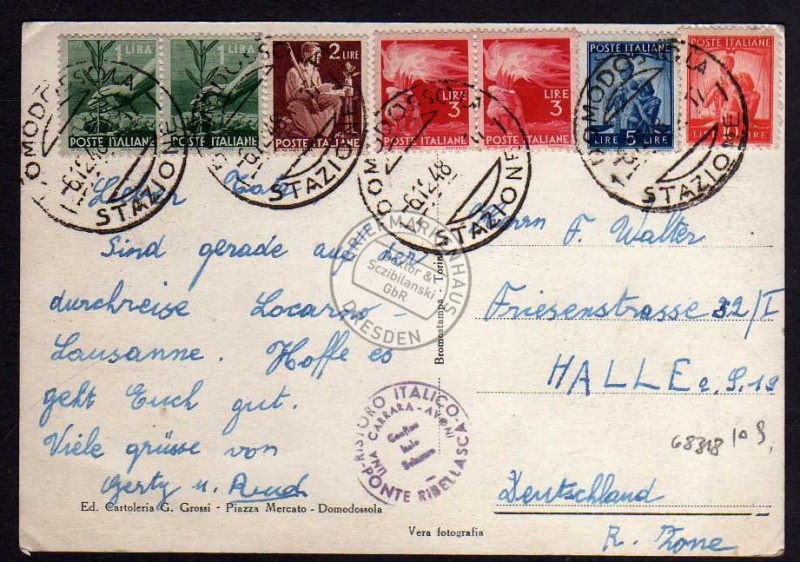 1 LIRA
POSTE ITALIANE
1 LIRA
POSTE ITALIANE
2 LIRE
POSTE ITALIANE
LIRE 3
POSTE ITALIANE
LIRE 3
POSTE ITALIANE
POSTE ITALIANE
LIRE 5 LIRE
POSTE ITALIANE
10
DOMODOSSOLA
STAZIONE
6.12.48
DOMODOSSOLA
STAZIONE
DOMODOSSOLA
6.12.48
STAZIONE
DOMODOSSOLA
STAZIONE
Lieber
Sind gerade auf der
durchreise Locarno-
Lausanne. Hoffe es
geht Euch gut.
Viele grüsse von
Gerty u.
Ed. Cartoleria G. Grossi - Piazza Mercato - Domodossola
BRIEFMARKENHAUS
Sczibilanski
GbR
DRESDEN
Bromostampa - Torino
RISTORO ITALICO
CARRARA -
PONTE RIBELLASCA
Vera fotografia
Herrn F. Walter
Friesenstrasse 32/I
HALLE a. S. 19
68318
Deutschland
R. Zone